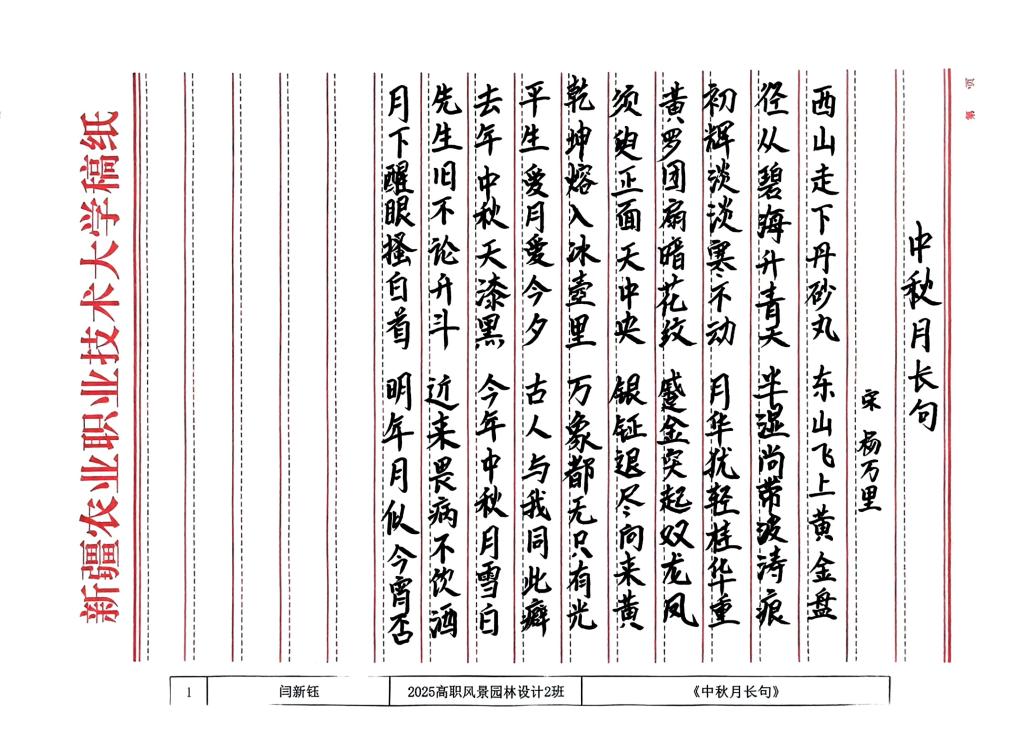 第 页
中秋月长句
宋 杨万里
西山走下丹砂丸 东山飞上黄金盘
径从碧海升青天 半湿尚带波涛痕
初辉淡淡寒不动 月华犹轻桂华重
黄罗团扇暗花纹 蹙金突起双龙凤
须臾正面天中央 银钲退尽向来黄
乾坤熔入冰壶里 万象都无只有光
平生爱月爱今夕 古人与我同此癖
去年中秋天漆黑 今年中秋月雪白
先生旧不论升斗 近来畏病不饮酒
月下醒眼搔白首 明年月似今宵否
新疆农业职业技术大学稿纸
1 闫新钰 2025高职风景园林设计2班 《中秋月长句》